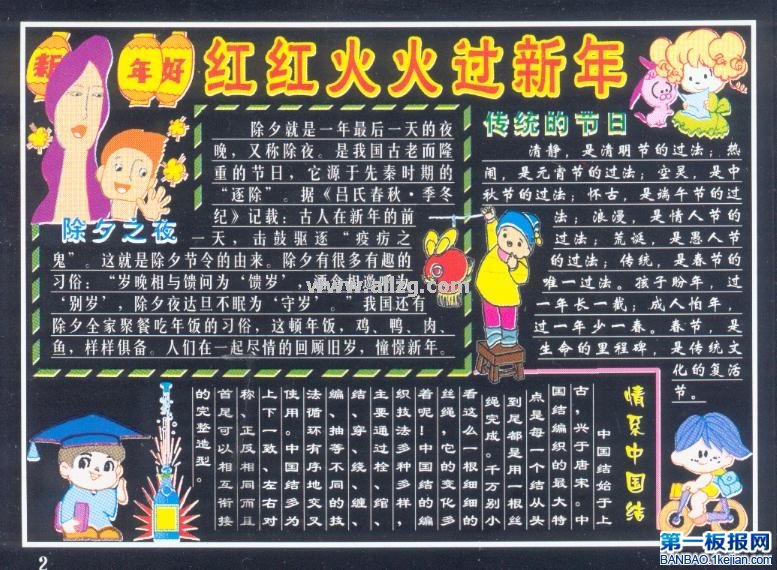 新年好
红红火火过新年
除夕之夜
除夕就是一年最后一天的夜
晚，又称除夜。是我国古老而隆
重的节日，它源于先秦时期的
“逐除”。据《吕氏春秋·季冬
纪》记载：古人在新年的前
一天，击鼓驱逐“疫疠之
鬼”。这就是除夕节令的由来。除夕有很多有趣的
习俗：“岁晚相与馈问为‘馈岁’，酒食相邀呼为
‘别岁’，除夕夜达旦不眠为‘守岁’。”我国还有
除夕全家聚餐吃年饭的习俗，这顿年饭，鸡、鸭、肉、
鱼，样样俱备。人们在一起尽情的回顾旧岁，憧憬新年。
www.allzg.com
传统的节日
清静，是清明节的过法；热
闹，是元宵节的过法；空灵，是中
秋节的过法；怀古，是端午节的过
法；浪漫，是情人节的
过法；荒诞，是愚人节
的过法；传统，是春节的
唯一过法。孩子盼年，过
一年长一截；成人怕年，
过一年少一春。春节，是
生命的里程碑，是传统文
化的复活
节。
情系中国结
中国结始于上
古，兴于唐宋。中
国结编织的最大特
点是每一个结从头
到尾都是用一根丝
绳完成。千万别小
看这么一根细细的
丝绳，它的变化多
着呢！中国结的编
织技法多种多样，
主要通过栓、绾、
结、穿、绕、缠、
编、抽等不同的技
法循环有序地交叉
使用。中国结多为
上下一致、左右对
称、正反相同而且
首尾可以相互衔接
的完整造型。
2
第一板报网
BANBAO.1kejian.com